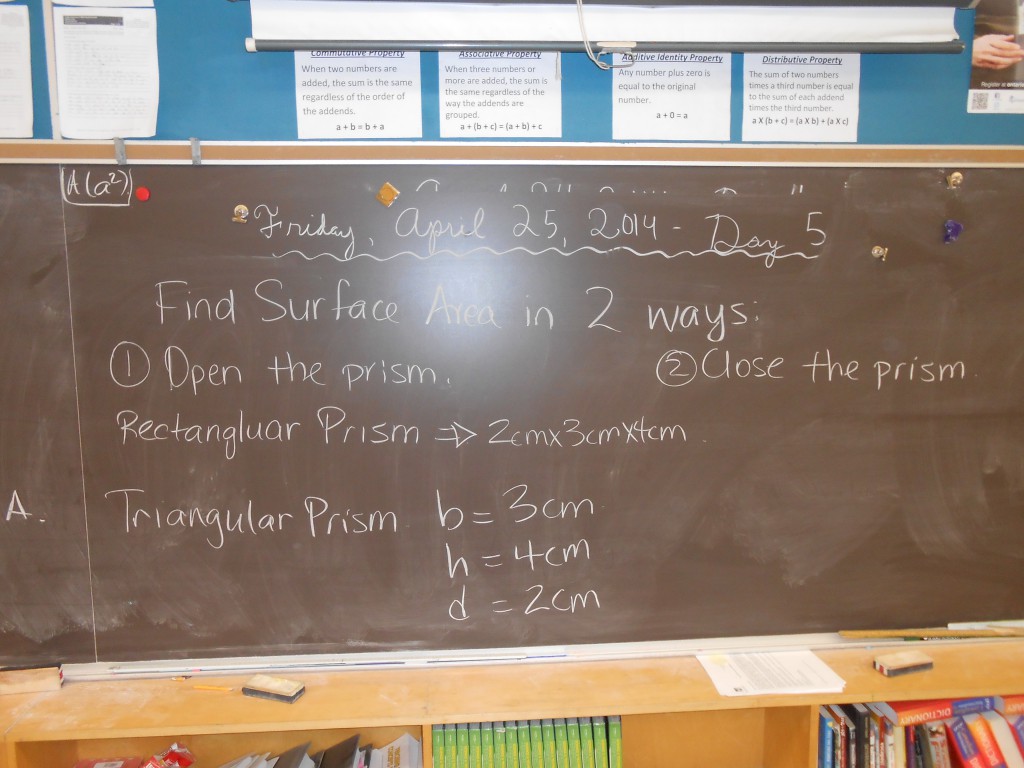 Commutative Property
When two numbers are
added, the sum is the same
regardless of the order of
the addends.
a + b = b + a
Associative Property
When three numbers or
more are added, the sum is
the same regardless of the
way the addends are
grouped.
a + (b + c) = (a + b) + c
Additive Identity Property
Any number plus zero is
equal to the original
number.
a + 0 = a
Distributive Property
The sum of two numbers
times a third number is equal
to the sum of each addend
times the third number.
a X (b + c) = (a X b) + (a X c)
A(a²)
Friday, April 25, 2014 - Day 5
Find Surface Area in 2 ways:
① Open the prism.
② Close the prism
Rectangluar Prism ⇒ 2cmx3cmx4cm.
A.
Triangular Prism b = 3cm
h = 4cm
d = 2cm
DICTIONARY